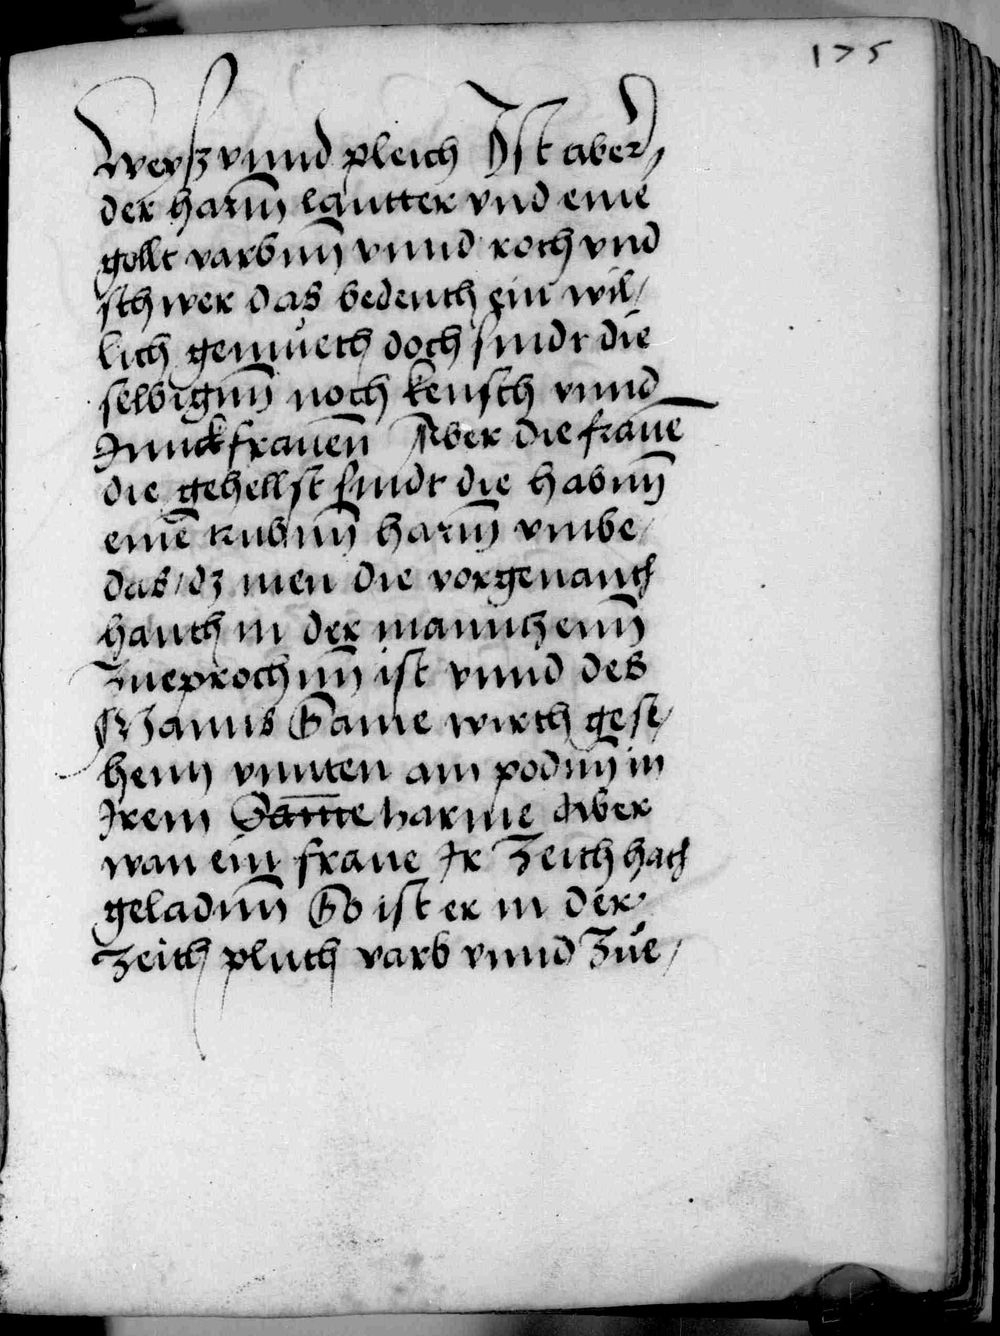 175
Weyß vnnd pleich Ist aber
der harm̄ lautter vnd eine
gollt varbnn̄ vnnd roth vnd
schwer das bedeuth ein wil/
lich gemüeth doch sindt die
selbignn̄ noch keusch vnnd
Junckfrauen̄ Aber die fraue̅
die gehellst sindt die habnn̄
eine̅ trubnn̄ harm̄ vmbe/
das/ dz men die vorgenanth
hauth in der mannitz enn̄
Zueprochnn̄ ist vnnd des
Manns Same wirth gese/
henn vnnten am podnn̄ in
Irem Same harme Aber
wan ein fraue Ir Zeith hath
geladnn̄ So ist er in der
Zeith pluth varb vnnd Zue/